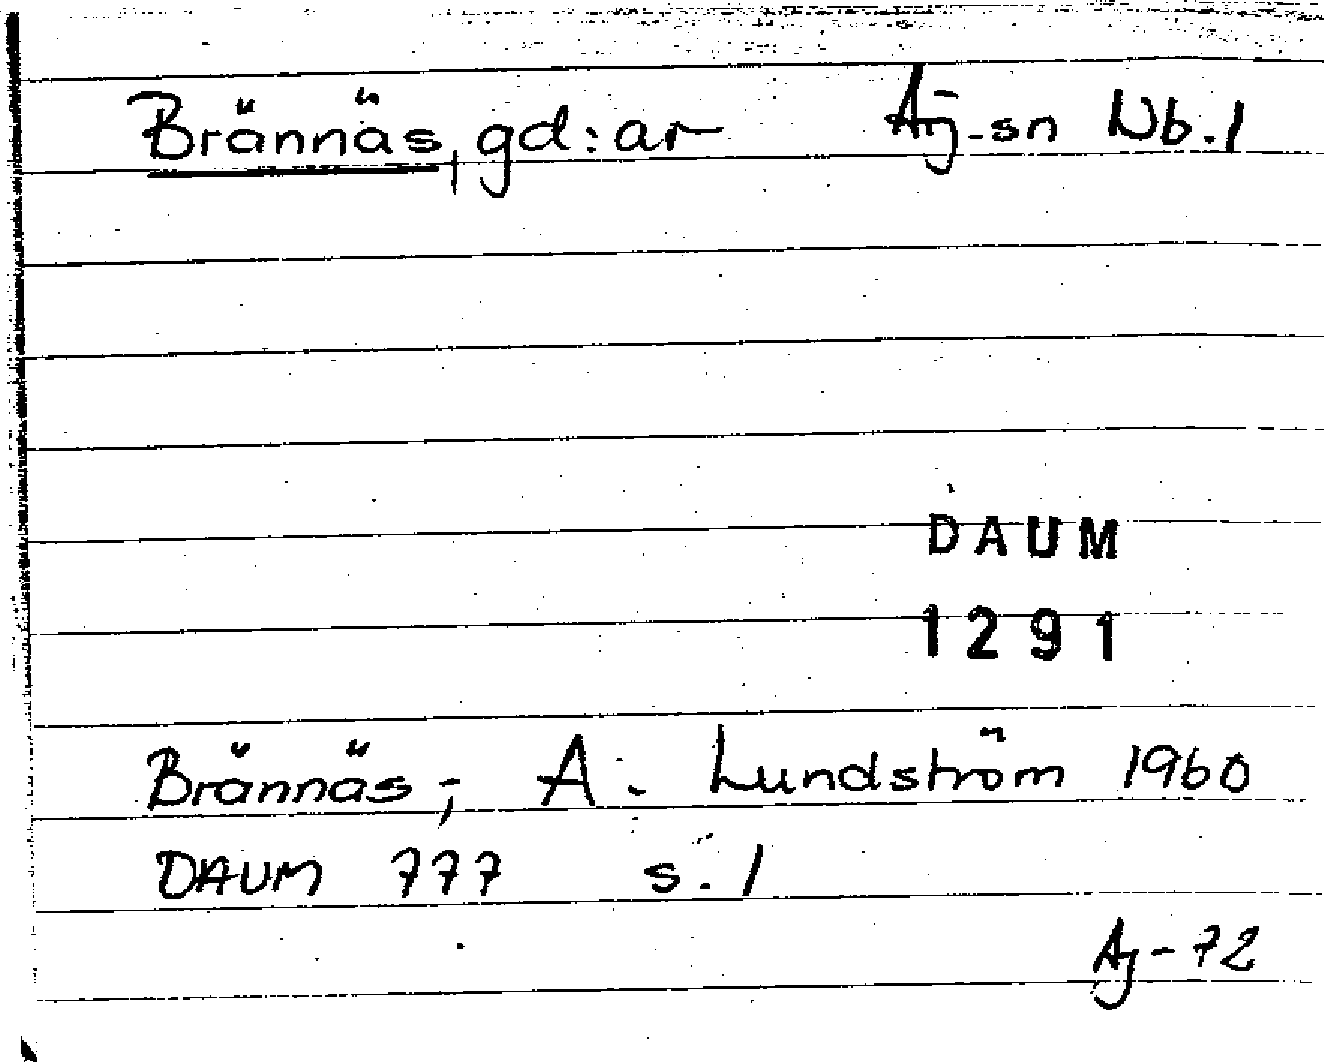 Brännäs, gd:ar Aj-sn Nb.1
DAUM
1291
Brännäs; A. Lundström 1960
DAUM 777 s. 1
Aj-72